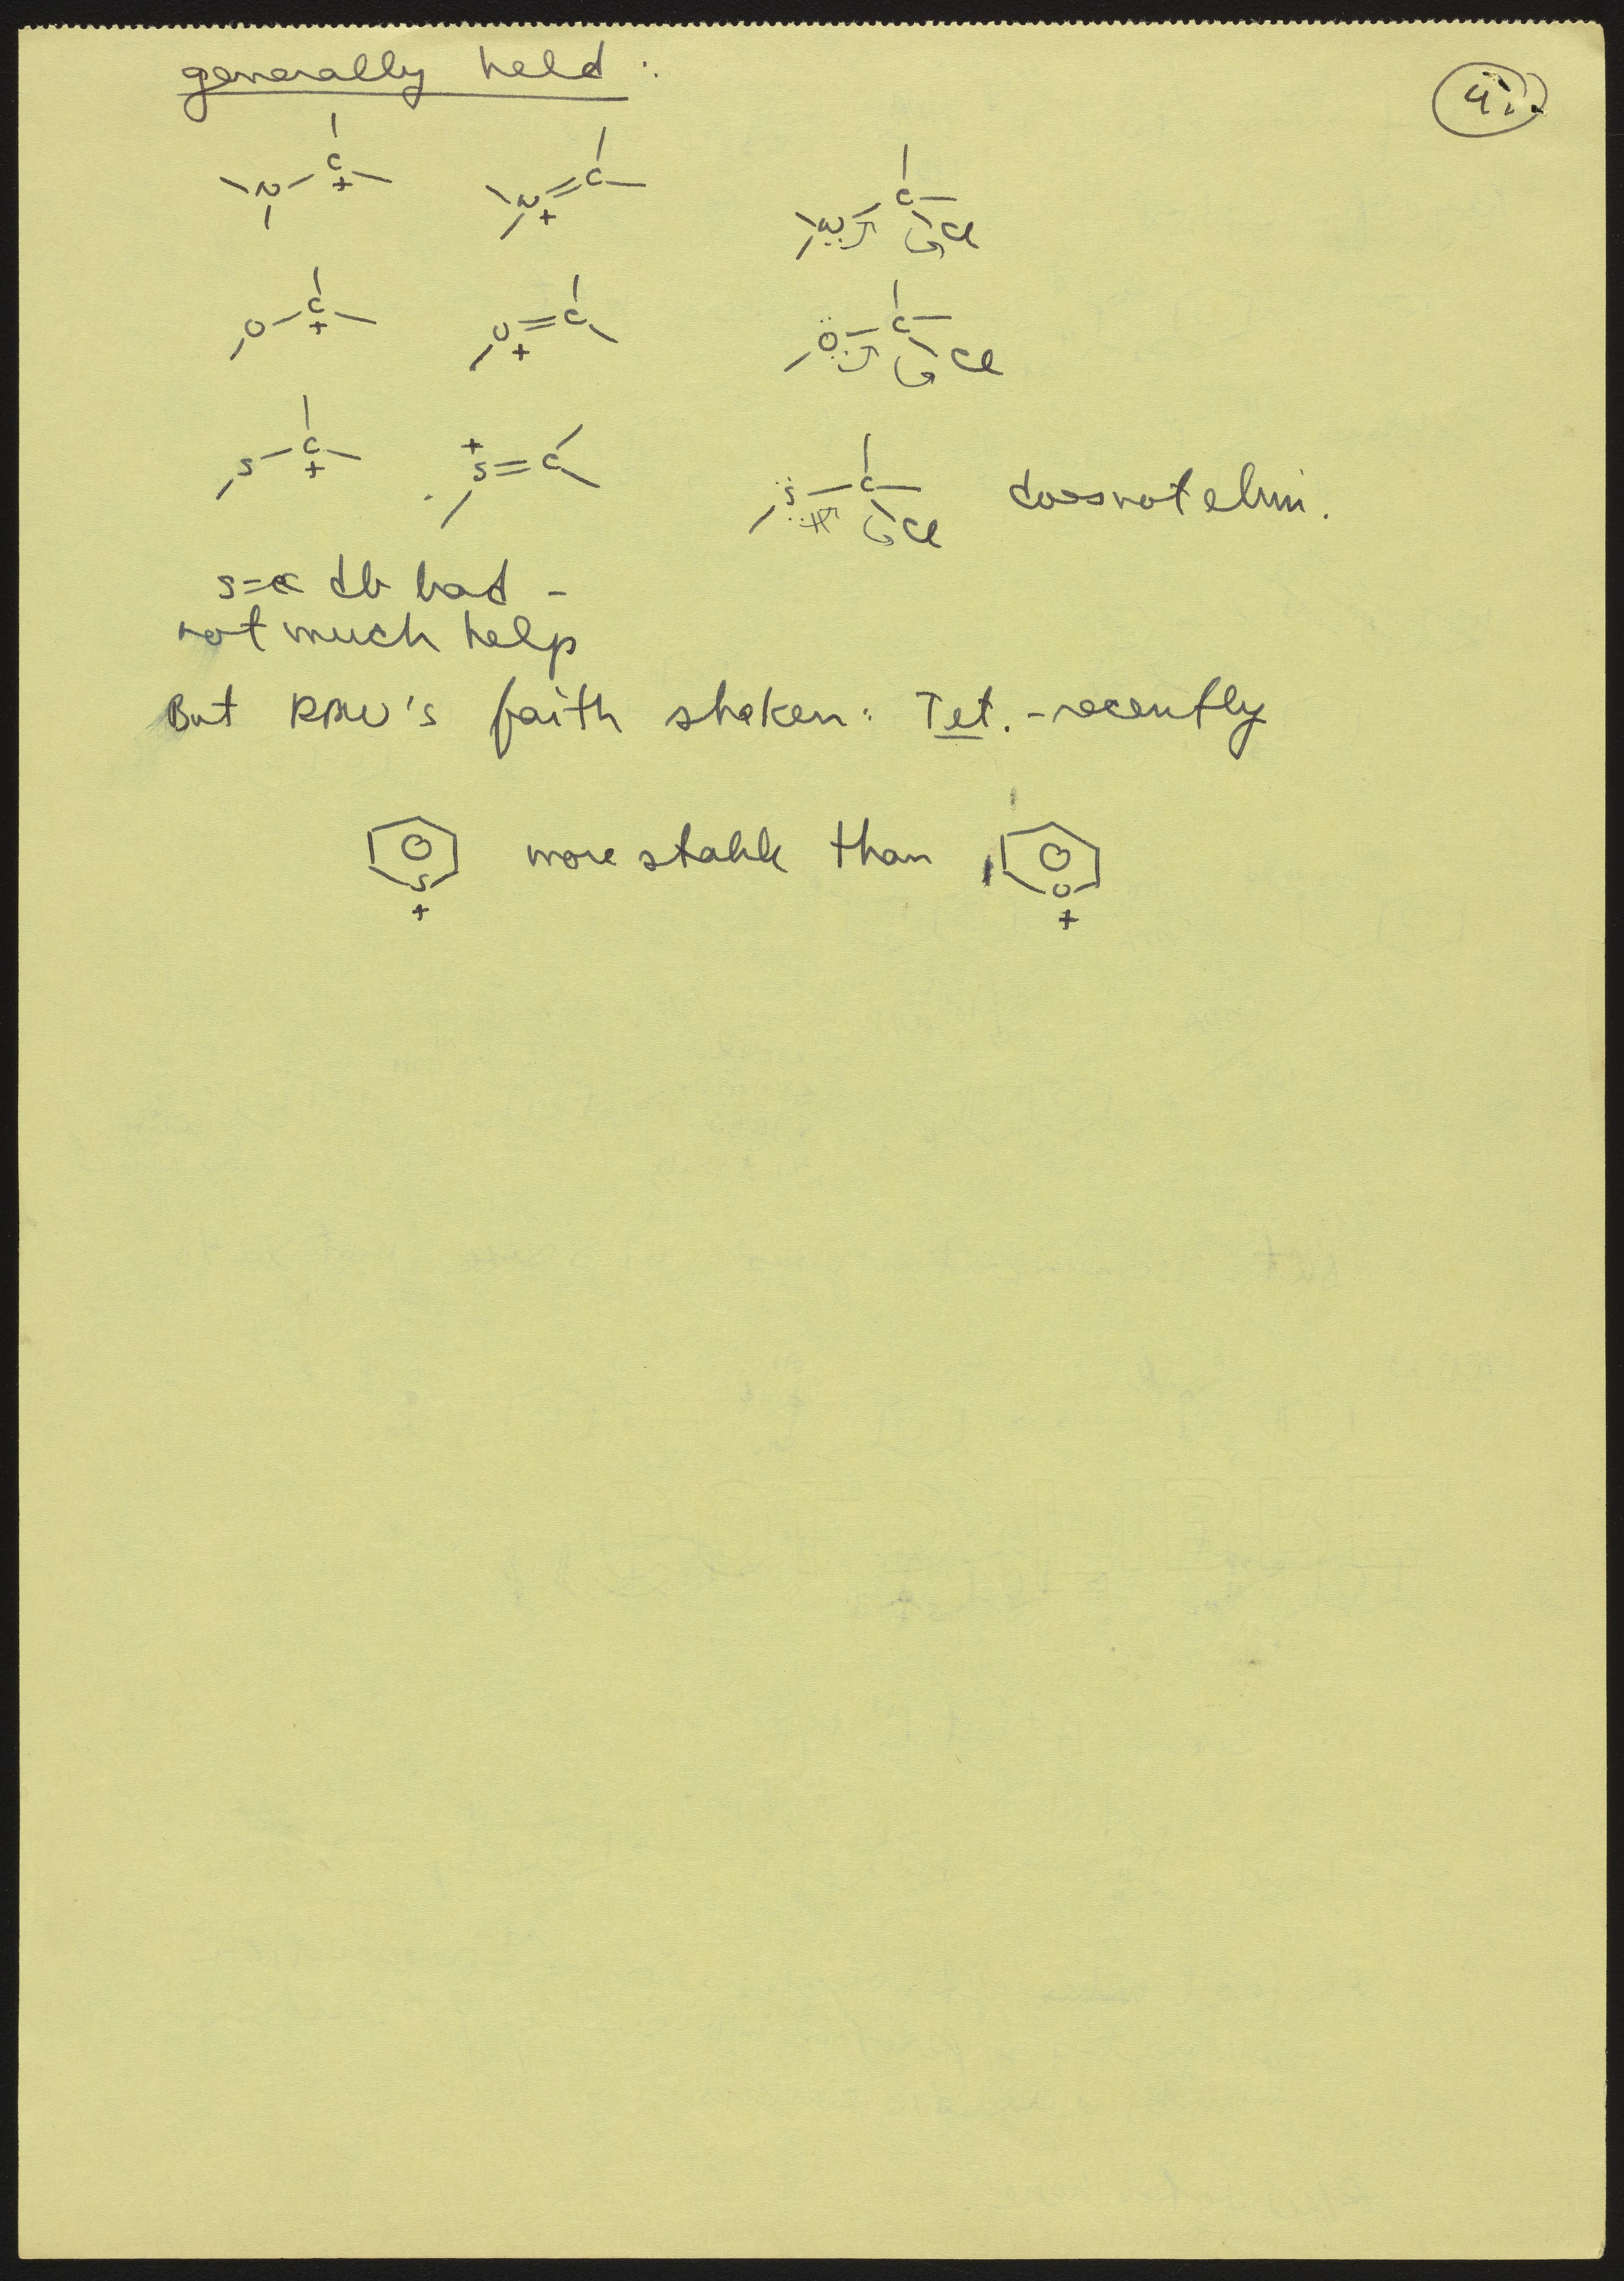 generally held :
4.
N C + N + C N C Cl
O C + O + C O C Cl
S C + + S C S C Cl does not elim.
S=C db bad -
not much help
But RBW's faith shaken: Tet. - recently
S + more stable than O +